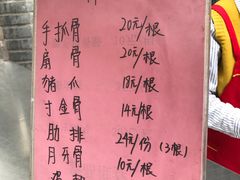 手抓骨 20元/根
扇骨 20元/根
猪爪 18元/根
寸金骨 14元/根
肋排 24元/份(3根)
月牙骨 10元/根